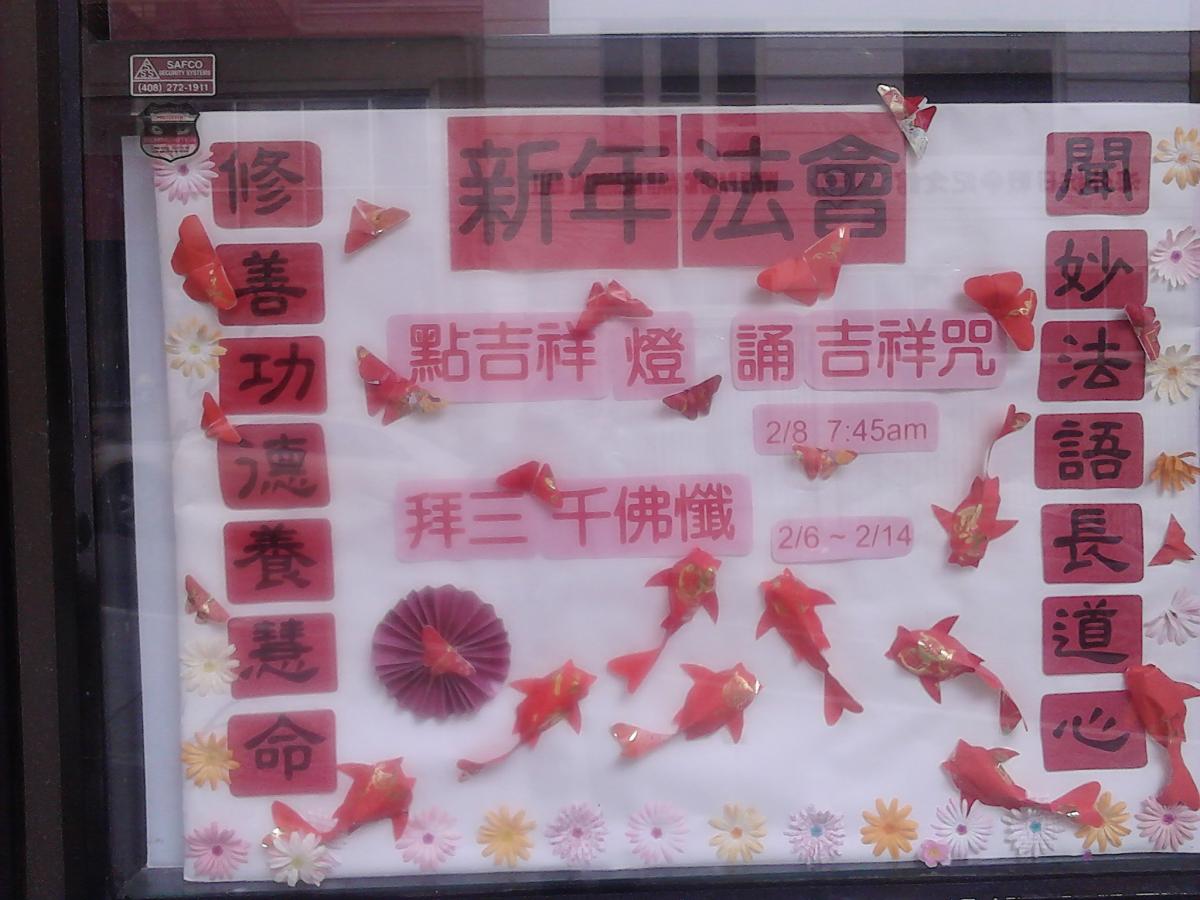 SAFCO
SECURITY SYSTEMS
(408) 272-1911
新年法會
聞妙法語長道心
修善功德養慧命
點吉祥燈 誦吉祥咒
2/8 7:45am
拜三千佛懺 2/6 ~ 2/14